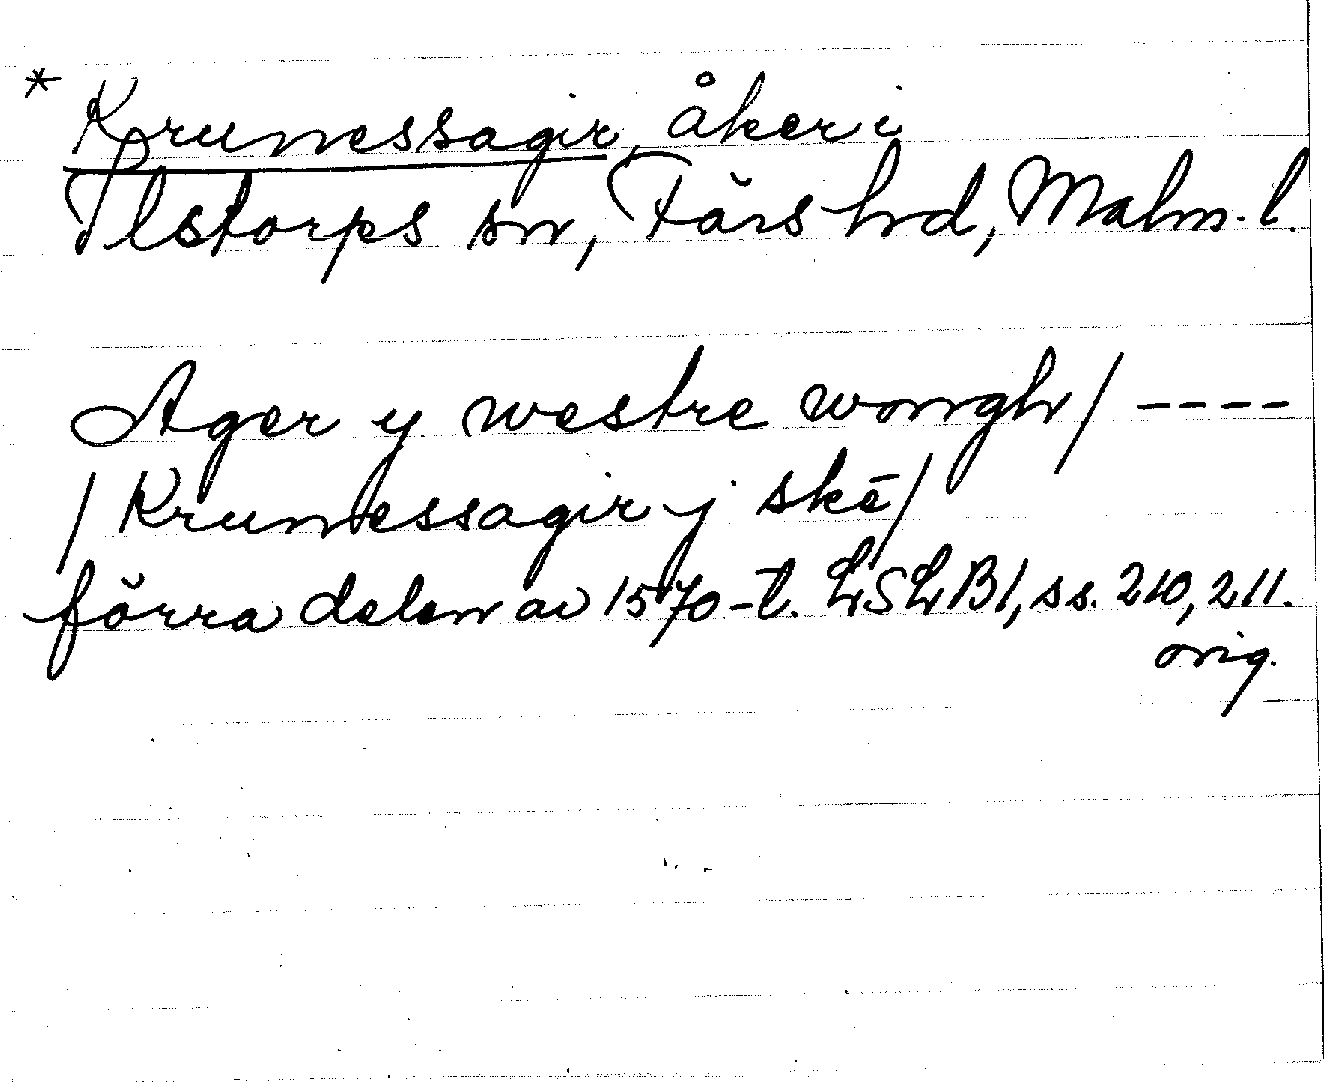 * Krumessagir, åker i
Ilstorps sn, Färs hd, Malm. l.
Ager y westre wongh / ----
/ Krumessagir j skē /
förra delen av 1570-t. LSLB1, ss. 210, 211.
orig.